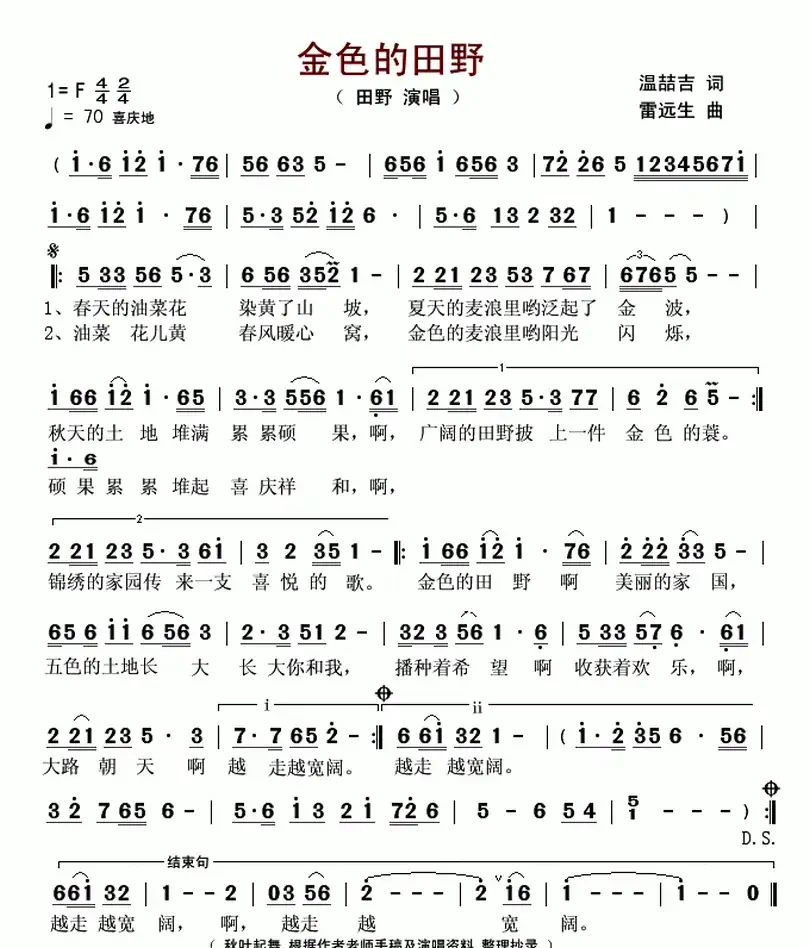 金色的田野
1= F 4/4 2/4
( 田野 演唱 )
温喆吉 词
♩ = 70 喜庆地
雷远生 曲
( i·6 i2 i·76 | 56 63 5 - | 656 i 656 3 | 72 26 5 1234567i |
i·6 i2 i · 76 | 5·3 52 i2 6 · | 5·6 13 2 32 | 1 - - - ) |
𝄋
‖: 5 33 56 5·3 | 6 56 352 1 - | 2 21 23 53 7 67 | 6765 5 - - |
3
1、春天的油菜花 染黄了山 坡， 夏天的麦浪里哟泛起了 金 波，
2、油菜 花儿黄 春风暖心 窝， 金色的麦浪里哟阳光 闪 烁，
1
i 66 i2 i · 65 | 3·3 556 1·61 | 2 21 23 5·3 77 | 6 2 6 5 - :‖
秋天的土 地 堆满 累 累硕 果，啊， 广阔的田野披 上一件 金 色 的蓑。
i · 6
硕 果 累 累 堆起 喜 庆祥 和，啊，
2
2 21 23 5· 3 6i | 3 2 35 1 - ‖: i 66 i2 i · 76 | 2 22 33 5 - |
锦绣的家园传 来一支 喜 悦 的 歌。 金色的田 野 啊 美丽的家 国，
656 ii 6 56 3 | 2· 3 51 2 - | 32 3 56 1 · 6 | 5 33 57 6 · 61 |
五色的土地长 大 长 大你和我， 播种着希 望 啊 收获着欢 乐，啊，
i
ii
2 21 23 5 · 3 | 7· 7 65 2 - :‖ 6 6i 32 1 - | ( i·2 35 6 · 56 |
大路 朝 天 啊 越 走越宽阔。 越走 越宽阔。
3 2 7 65 6 - | 5·6 i 3 2 i 72 6 | 5 - 6 5 4 | 5/1 - - - ) :‖
D.S.
结束句
66i 32 | 1 - - 2 | 03 56 | 2 - - - | 2 i6 | i - - - | 1 - - 0 ‖
越走 越宽 阔， 啊， 越走 越 宽 阔。
( 秋叶起舞 根据作者老师手稿及演唱资料 整理抄录 )